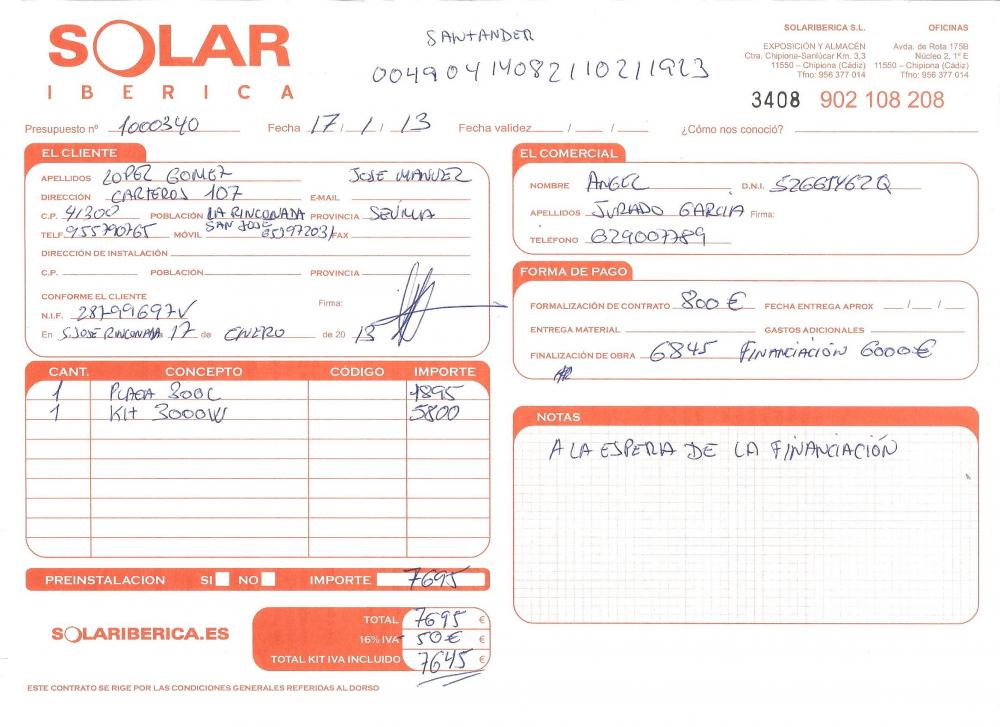 SOLAR
IBERICA
SANTANDER
00490414082110211923
SOLARIBERICA S.L.
EXPOSICIÓN Y ALMACÉN
Ctra. Chipiona-Sanlúcar Km. 3,3
11550 – Chipiona (Cádiz)
Tfno: 956 377 014
OFICINAS
Avda. de Rota 175B
Núcleo 2, 1º E
11550 – Chipiona (Cádiz)
Tfno: 956 377 014
3408 902 108 208
Presupuesto nº 1000340 Fecha 17 / 1 / 13 Fecha validez / / ¿Cómo nos conoció?
EL CLIENTE
APELLIDOS LOPEZ GOMEZ JOSE MANUEL
DIRECCIÓN CARTEROS 107 E-MAIL
C.P. 41300 POBLACIÓN LA RINCONADA PROVINCIA SEVILLA
SAN JOSE
TELF. 955790765 MÓVIL 651972031 FAX
DIRECCIÓN DE INSTALACIÓN
C.P. POBLACIÓN PROVINCIA
CONFORME EL CLIENTE
N.I.F. 28799697V Firma:
En S. JOSE RINCONADA 17 de ENERO de 20 13
EL COMERCIAL
NOMBRE ANGEL D.N.I. 52665462Q
APELLIDOS JURADO GARCIA Firma:
TELÉFONO 629007789
FORMA DE PAGO
FORMALIZACIÓN DE CONTRATO 800 € FECHA ENTREGA APROX / /
ENTREGA MATERIAL GASTOS ADICIONALES
FINALIZACIÓN DE OBRA 6845 FINANCIACIÓN 6000€
CANT. CONCEPTO CÓDIGO IMPORTE
1 PLACA 300L 1895
1 KIT 3000W 5800
NOTAS
A LA ESPERA DE LA FINANCIACIÓN
PREINSTALACION SI NO IMPORTE 7695
SOLARIBERICA.ES
TOTAL 7695 €
16% IVA - 50€ €
TOTAL KIT IVA INCLUIDO 7645 €
ESTE CONTRATO SE RIGE POR LAS CONDICIONES GENERALES REFERIDAS AL DORSO